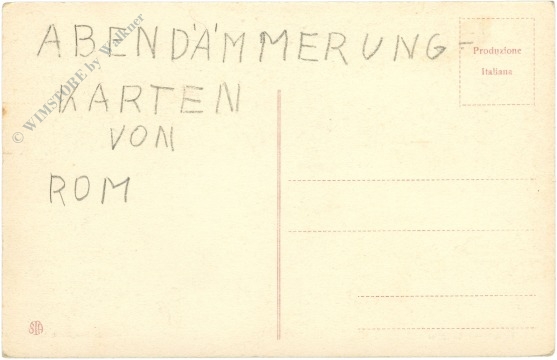 ABENDÄMMERUNG-
KARTEN
VON
ROM
Produzione
Italiana
© WIMSTORE by Walkner